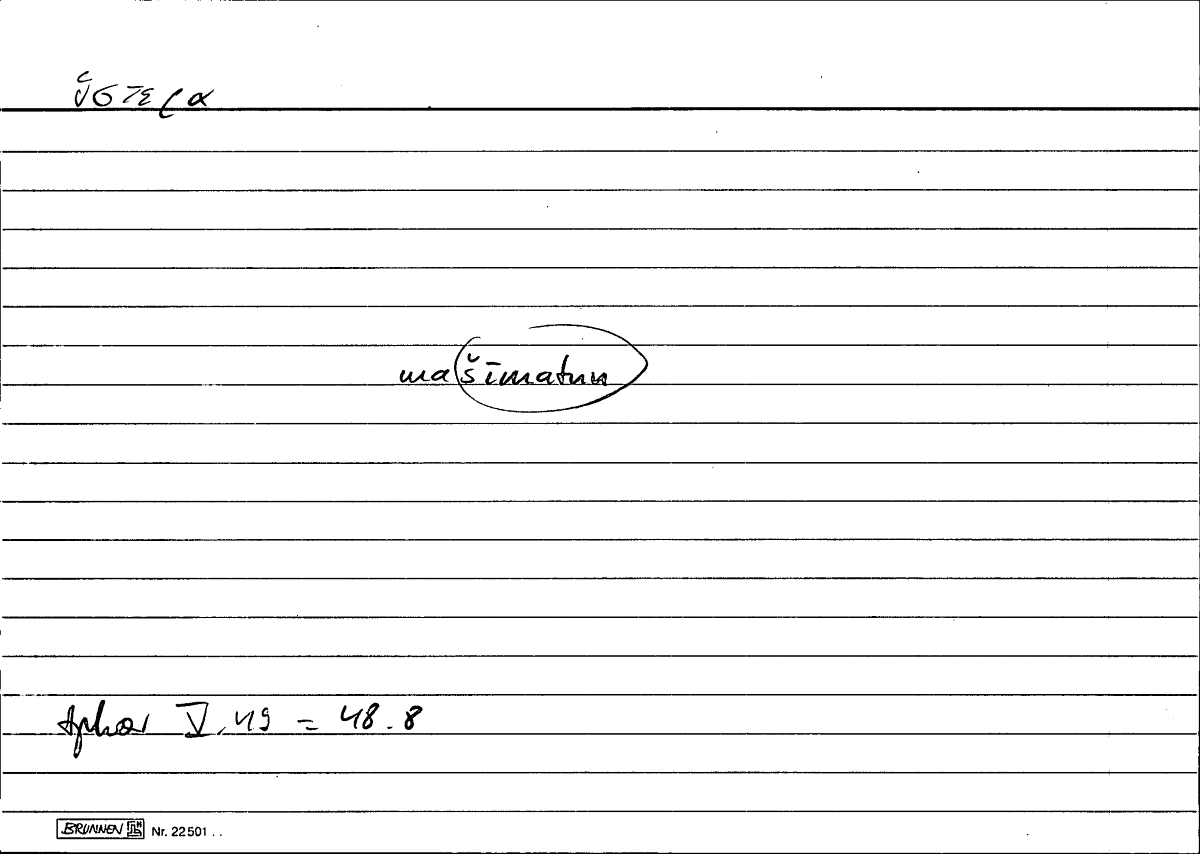 ὑστέρα
mašīmatun
Aphor V. 49 = 48.8
BRUNNEN Nr. 22501 . .